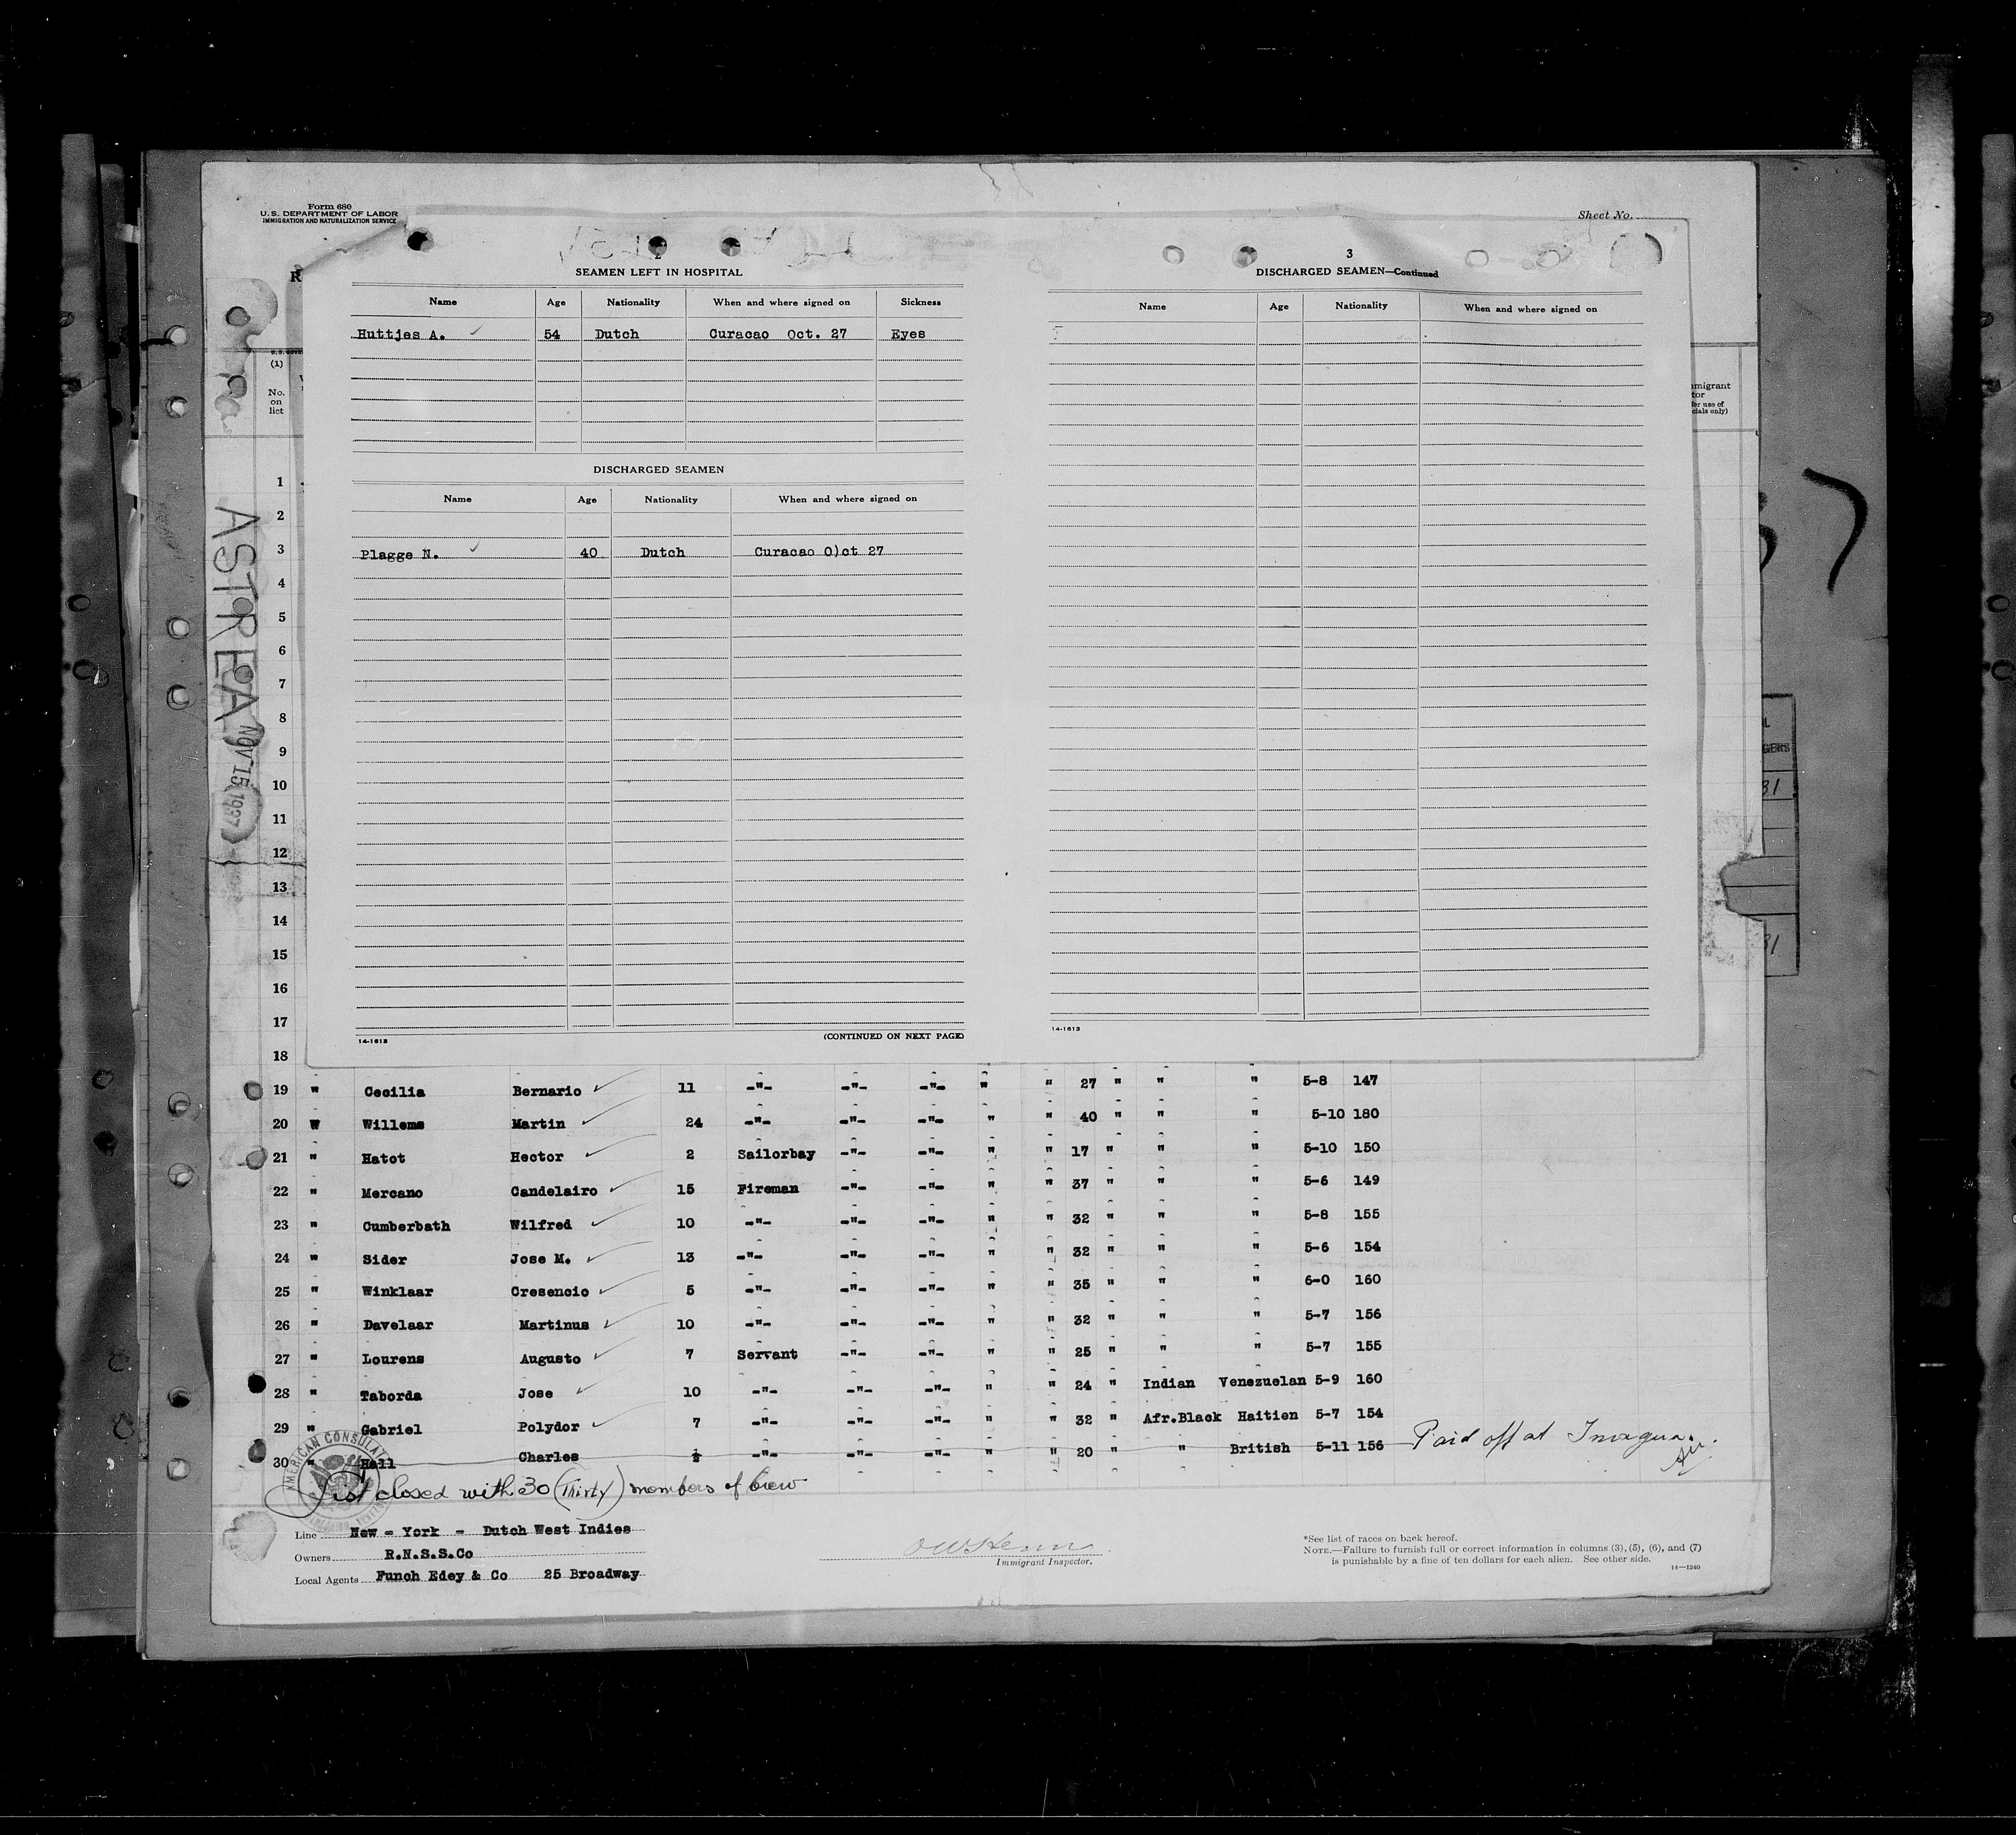 Form 680
U. S. DEPARTMENT OF LABOR
IMMIGRATION AND NATURALIZATION SERVICE
Sheet No.
R
2
SEAMEN LEFT IN HOSPITAL
Name Age Nationality When and where signed on Sickness
Huttjes A. 54 Dutch Curacao Oct. 27 Eyes
DISCHARGED SEAMEN
Name Age Nationality When and where signed on
Plagge N. 40 Dutch Curacao O)ct 27
14-1613
(CONTINUED ON NEXT PAGE)
3
DISCHARGED SEAMEN—Continued
Name Age Nationality When and where signed on
14-1613
(1)
No.
on
list
ASTREA NOV 15 1937
1
2
3
4
5
6
7
8
9
10
11
12
13
14
15
16
17
18
19 " Cecilia Bernario ✓ 11 -"- -"- -"- " " 27 " " " 5-8 147
20 " Willems Martin ✓ 24 -"- -"- -"- " " 40 " " " 5-10 180
21 " Hatot Hector ✓ 2 Sailorbay -"- -"- " " 17 " " " 5-10 150
22 " Mercano Candelairo ✓ 15 Fireman -"- -"- " " 37 " " " 5-6 149
23 " Cumberbath Wilfred ✓ 10 -"- -"- -"- " " 32 " " " 5-8 155
24 " Sider Jose M. ✓ 13 -"- -"- -"- " " 32 " " " 5-6 154
25 " Winklaar Cresencio ✓ 5 -"- -"- -"- " " 35 " " " 6-0 160
26 " Davelaar Martinus ✓ 10 -"- -"- -"- " " 32 " " " 5-7 156
27 " Lourens Augusto ✓ 7 Servant -"- -"- " " 25 " " " 5-7 155
28 " Taborda Jose ✓ 10 -"- -"- -"- " " 24 " Indian Venezuelan 5-9 160
29 " Gabriel Polydor ✓ 7 -"- -"- -"- " " 32 " Afr.Black Haitien 5-7 154
30 " Hall Charles -"- -"- -"- " " 20 " " British 5-11 156 Paid off at Inagua.
AMERICAN CONSULAR
List closed with 30 (Thirty) members of Crew
Line New - York - Dutch West Indies
Owners R.N.S.S.Co
Local Agents Funch Edey & Co 25 Broadway
Immigrant Inspector.
*See list of races on back hereof.
NOTE.—Failure to furnish full or correct information in columns (3), (5), (6), and (7)
is punishable by a fine of ten dollars for each alien. See other side.
14-1240